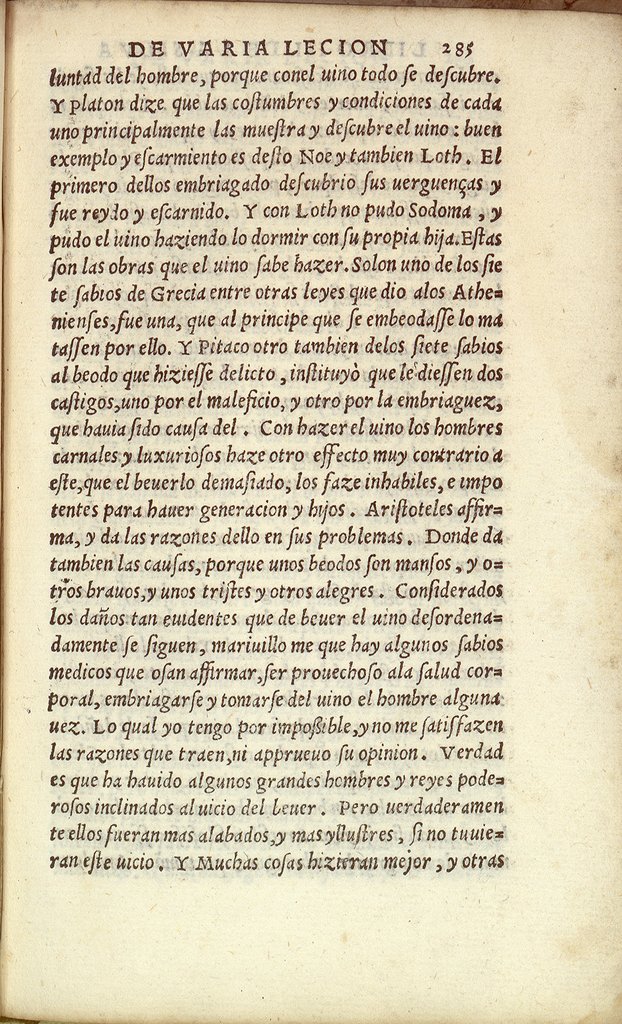 DE VARIA LECION 285
luntad del hombre, porque conel uino todo se descubre.
Y Platon dize que las costumbres y condiciones de cada
uno principalmente las muestra y descubre el uino : buen
exemplo y escarmiento es desto Noe y tambien Loth. El
primero dellos embriagado descubrio sus uerguenças y
fue reydo y escarnido. Y con Loth no pudo Sodoma , y
pudo el uino haziendo lo dormir con su propia hija. Estas
son las obras que el uino sabe hazer. Solon uno de los sie
te sabios de Grecia entre otras leyes que dio alos Athe=
nienses, fue una, que al principe que se embeodasse lo ma
tassen por ello. Y Pitaco otro tambien delos siete sabios
al beodo que hiziesse delicto , instituyò que le diessen dos
castigos, uno por el maleficio, y otro por la embriaguez,
que hauia sido causa del . Con hazer el uino los hombres
carnales y luxuriosos haze otro effecto muy contrario a
este, que el beuerlo demasiado, los faze inhabiles, e impo
tentes para hauer generacion y hijos . Aristoteles affir=
ma, y da las razones dello en sus problemas. Donde da
tambien las causas, porque unos beodos son mansos , y o=
tros brauos, y unos tristes y otros alegres . Considerados
los daños tan euidentes que de beuer el uino desordena=
damente se siguen , mariuillo me que hay algunos sabios
medicos que osan affirmar, ser prouechoso ala salud cor=
poral, embriagarse y tomarse del uino el hombre alguna
uez. Lo qual yo tengo por impossible, y no me satisfazen
las razones que traen, ni apprueuo su opinion. Verdad
es que ha hauido algunos grandes hombres y reyes pode=
rosos inclinados al uicio del beuer . Pero uerdaderamen
te ellos fueran mas alabados, y mas yllustres , si no tuuie=
ran este uicio . Y Muchas cosas hizieran mejor , y otras